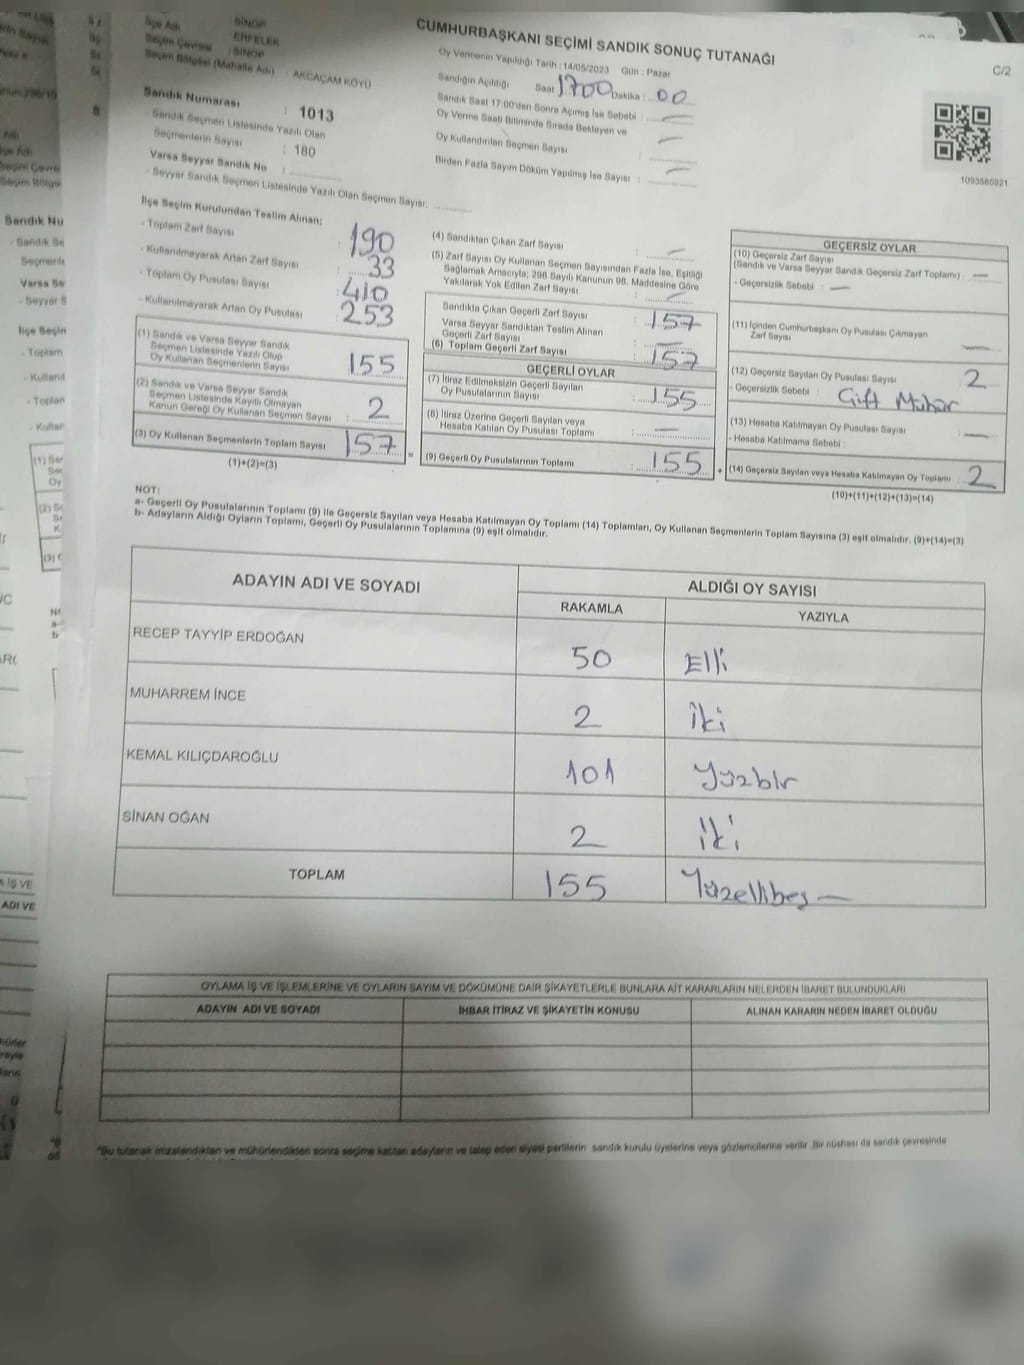 İlçe Adı : SİNOP
: ERFELEK
Seçim Çevresi : SİNOP
Seçim Bölgesi (Mahalle Adı) : AKCAÇAM KÖYÜ
CUMHURBAŞKANI SEÇİMİ SANDIK SONUÇ TUTANAĞI
C/2
Oy Vermenin Yapıldığı Tarih : 14/05/2023 Gün : Pazar
Sandığın Açıldığı Saat 1700 Dakika : 00
Sandık Saat 17:00'den Sonra Açılmış İse Sebebi : —
Oy Verme Saati Bitiminde Sırada Bekleyen ve
Oy Kullandırılan Seçmen Sayısı : —
Birden Fazla Sayım Döküm Yapılmış İse Sayısı : —
1093585821
Sandık Numarası : 1013
- Sandık Seçmen Listesinde Yazılı Olan
Seçmenlerin Sayısı : 180
Varsa Seyyar Sandık No :
- Seyyar Sandık Seçmen Listesinde Yazılı Olan Seçmen Sayısı:
İlçe Seçim Kurulundan Teslim Alınan;
- Toplam Zarf Sayısı : 190
- Kullanılmayarak Artan Zarf Sayısı : 33
- Toplam Oy Pusulası Sayısı : 410
- Kullanılmayarak Artan Oy Pusulası : 253
(1) Sandık ve Varsa Seyyar Sandık
Seçmen Listesinde Yazılı Olup
Oy Kullanan Seçmenlerin Sayısı : 155
(2) Sandık ve Varsa Seyyar Sandık
Seçmen Listesinde Kayıtlı Olmayan
Kanun Gereği Oy Kullanan Seçmen Sayısı : 2
(3) Oy Kullanan Seçmenlerin Toplam Sayısı : 157
(1)+(2)=(3)
(4) Sandıktan Çıkan Zarf Sayısı : —
(5) Zarf Sayısı Oy Kullanan Seçmen Sayısından Fazla İse, Eşitliği
Sağlamak Amacıyla; 298 Sayılı Kanunun 98. Maddesine Göre
Yakılarak Yok Edilen Zarf Sayısı : —
Sandıkta Çıkan Geçerli Zarf Sayısı : 157
Varsa Seyyar Sandıktan Teslim Alınan
Geçerli Zarf Sayısı : —
(6) Toplam Geçerli Zarf Sayısı : 157
GEÇERLİ OYLAR
(7) İtiraz Edilmeksizin Geçerli Sayılan
Oy Pusulalarının Sayısı : 155
(8) İtiraz Üzerine Geçerli Sayılan veya
Hesaba Katılan Oy Pusulası Toplamı : —
(9) Geçerli Oy Pusulalarının Toplamı : 155
GEÇERSİZ OYLAR
(10) Geçersiz Zarf Sayısı
(Sandık ve Varsa Seyyar Sandık Geçersiz Zarf Toplamı) : —
- Geçersizlik Sebebi : —
(11) İçinden Cumhurbaşkanı Oy Pusulası Çıkmayan
Zarf Sayısı : —
(12) Geçersiz Sayılan Oy Pusulası Sayısı : 2
- Geçersizlik Sebebi : Çift Mühür
(13) Hesaba Katılmayan Oy Pusulası Sayısı : —
- Hesaba Katılmama Sebebi :
(14) Geçersiz Sayılan veya Hesaba Katılmayan Oy Toplamı : 2
(10)+(11)+(12)+(13)=(14)
NOT:
a- Geçerli Oy Pusulalarının Toplamı (9) ile Geçersiz Sayılan veya Hesaba Katılmayan Oy Toplamı (14) Toplamları, Oy Kullanan Seçmenlerin Toplam Sayısına (3) eşit olmalıdır. (9)+(14)=(3)
b- Adayların Aldığı Oyların Toplamı, Geçerli Oy Pusulalarının Toplamına (9) eşit olmalıdır.
ADAYIN ADI VE SOYADI
ALDIĞI OY SAYISI
RAKAMLA YAZIYLA
RECEP TAYYİP ERDOĞAN 50 Elli
MUHARREM İNCE 2 iki
KEMAL KILIÇDAROĞLU 101 Yüzbir
SİNAN OĞAN 2 iki
TOPLAM 155 Yüzellibeş —
OYLAMA İŞ VE İŞLEMLERİNE VE OYLARIN SAYIM VE DÖKÜMÜNE DAİR ŞİKAYETLERLE BUNLARA AİT KARARLARIN NELERDEN İBARET BULUNDUKLARI
ADAYIN ADI VE SOYADI İHBAR İTİRAZ VE ŞİKAYETİN KONUSU ALINAN KARARIN NEDEN İBARET OLDUĞU
*Bu tutanak imzalandıktan ve mühürlendikten sonra seçime katılan adayların ve talep eden siyasi partilerin sandık kurulu üyelerine veya gözlemcilerine verilir. Bir nüshası da sandık çevresinde